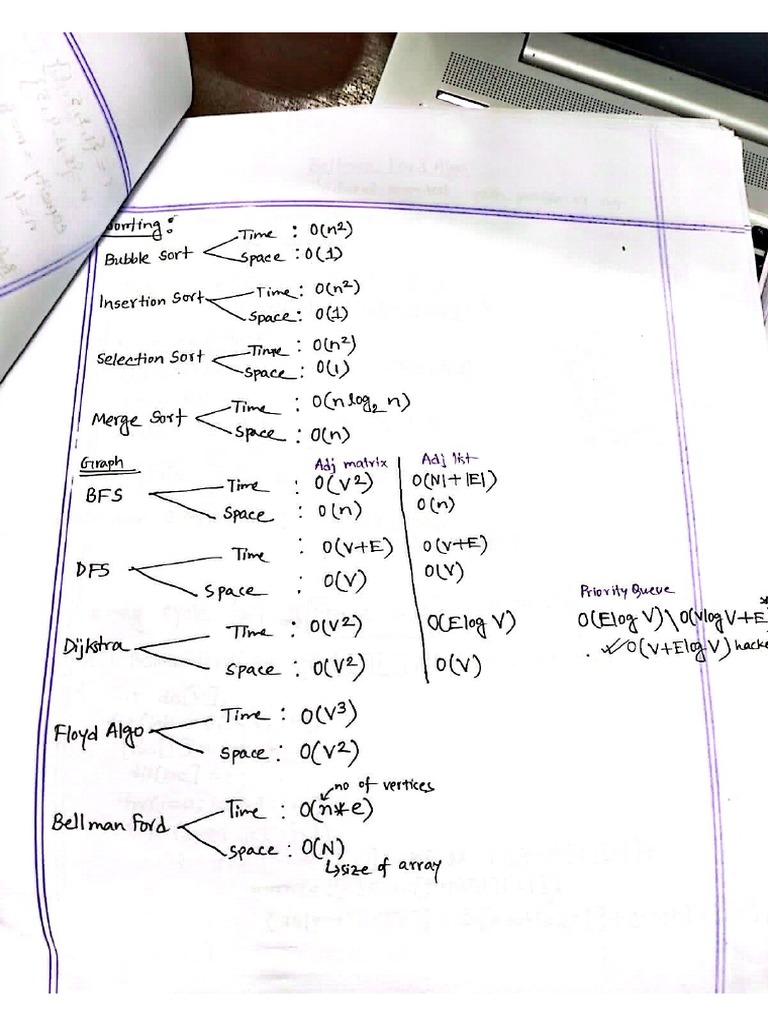 Sorting:
Bubble Sort Time : O(n²)
Space : O(1)
Insertion Sort Time : O(n²)
Space : O(1)
Selection Sort Time : O(n²)
Space : O(1)
Merge Sort Time : O(n log₂ n)
Space : O(n)
Graph Adj matrix Adj list
BFS Time : O(V²) O(|V|+|E|)
Space : O(n) O(n)
DFS Time : O(V+E) O(V+E)
Space : O(V) O(V)
Priority Queue
Dijkstra Time : O(V²) O(E log V) O(E log V) \ O(V log V + E)
Space : O(V²) O(V) O(V+E log V)
Floyd Algo Time : O(V³)
Space : O(V²)
no of vertices
Bellman Ford Time : O(n*e)
Space : O(N)
size of array